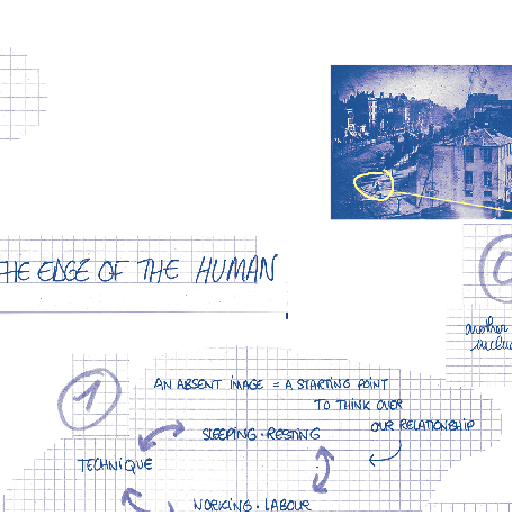 THE EDGE OF THE HUMAN
another
1
AN ABSENT IMAGE = A STARTING POINT
TO THINK OVER
OUR RELATIONSHIP
SLEEPING · RESTING
TECHNIQUE
WORKING · LABOUR